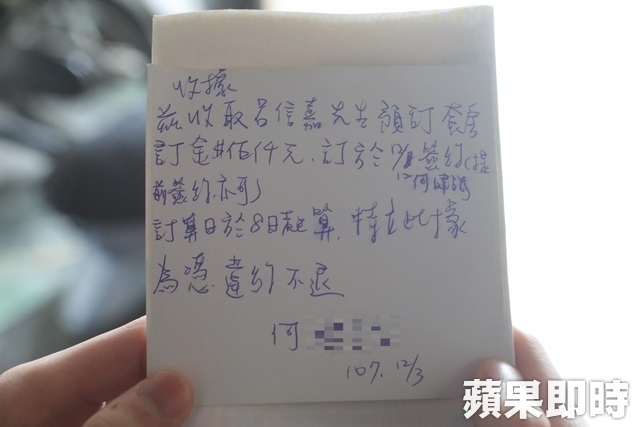 收據
茲收取呂信嘉先生預訂套房
訂金共伍仟元、訂於12/8簽約(提
12/何
前簽約亦可)
計算日於8日起算,特立此據
為憑.違約不退
何
107. 12/3
蘋果即時